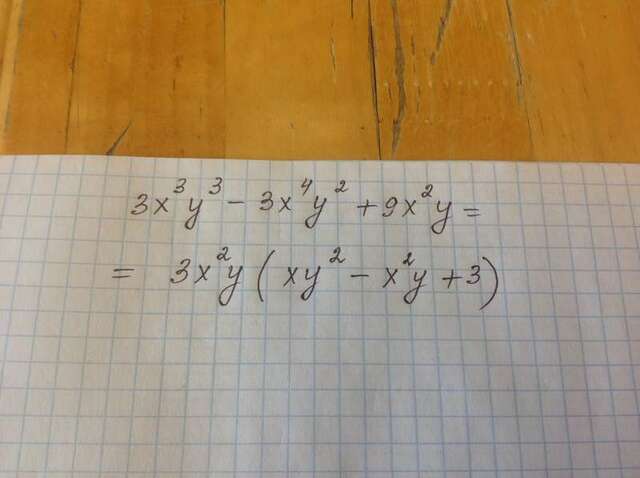 3x³y³ - 3x⁴y² + 9x²y =
= 3x²y ( xy² - x²y + 3)